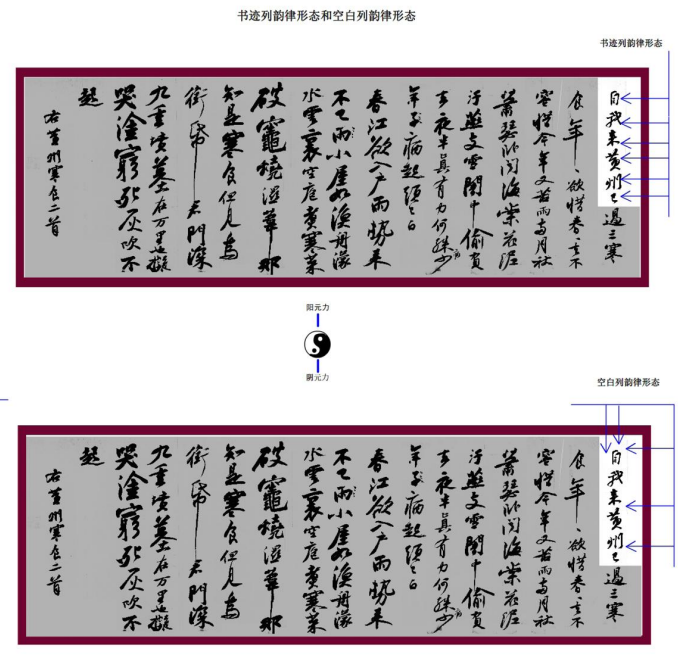 书迹列韵律形态和空白列韵律形态
书迹列韵律形态
自我来黄州已過三寒
食年〻欲惜春〻去不
容惜今年又苦雨两月秋
蕭瑟卧闻海棠花泥
汙燕支雪闇中偷負
去夜半真有力何殊少
年子病起頭已白
春江欲入户雨势来
不已雨小屋如漁舟濛〻
水雲裏空庖煮寒菜
破竈燒濕葦那
知是寒食但見烏
銜帋君門深
九重墳墓在万里也擬
哭塗窮死灰吹不
起
右黄州寒食二首
阳元力
阴元力
空白列韵律形态
自我来黄州已過三寒
食年〻欲惜春〻去不
容惜今年又苦雨两月秋
蕭瑟卧闻海棠花泥
汙燕支雪闇中偷負
去夜半真有力何殊少
年子病起頭已白
春江欲入户雨势来
不已雨小屋如漁舟濛〻
水雲裏空庖煮寒菜
破竈燒濕葦那
知是寒食但見烏
銜帋君門深
九重墳墓在万里也擬
哭塗窮死灰吹不
起
右黄州寒食二首